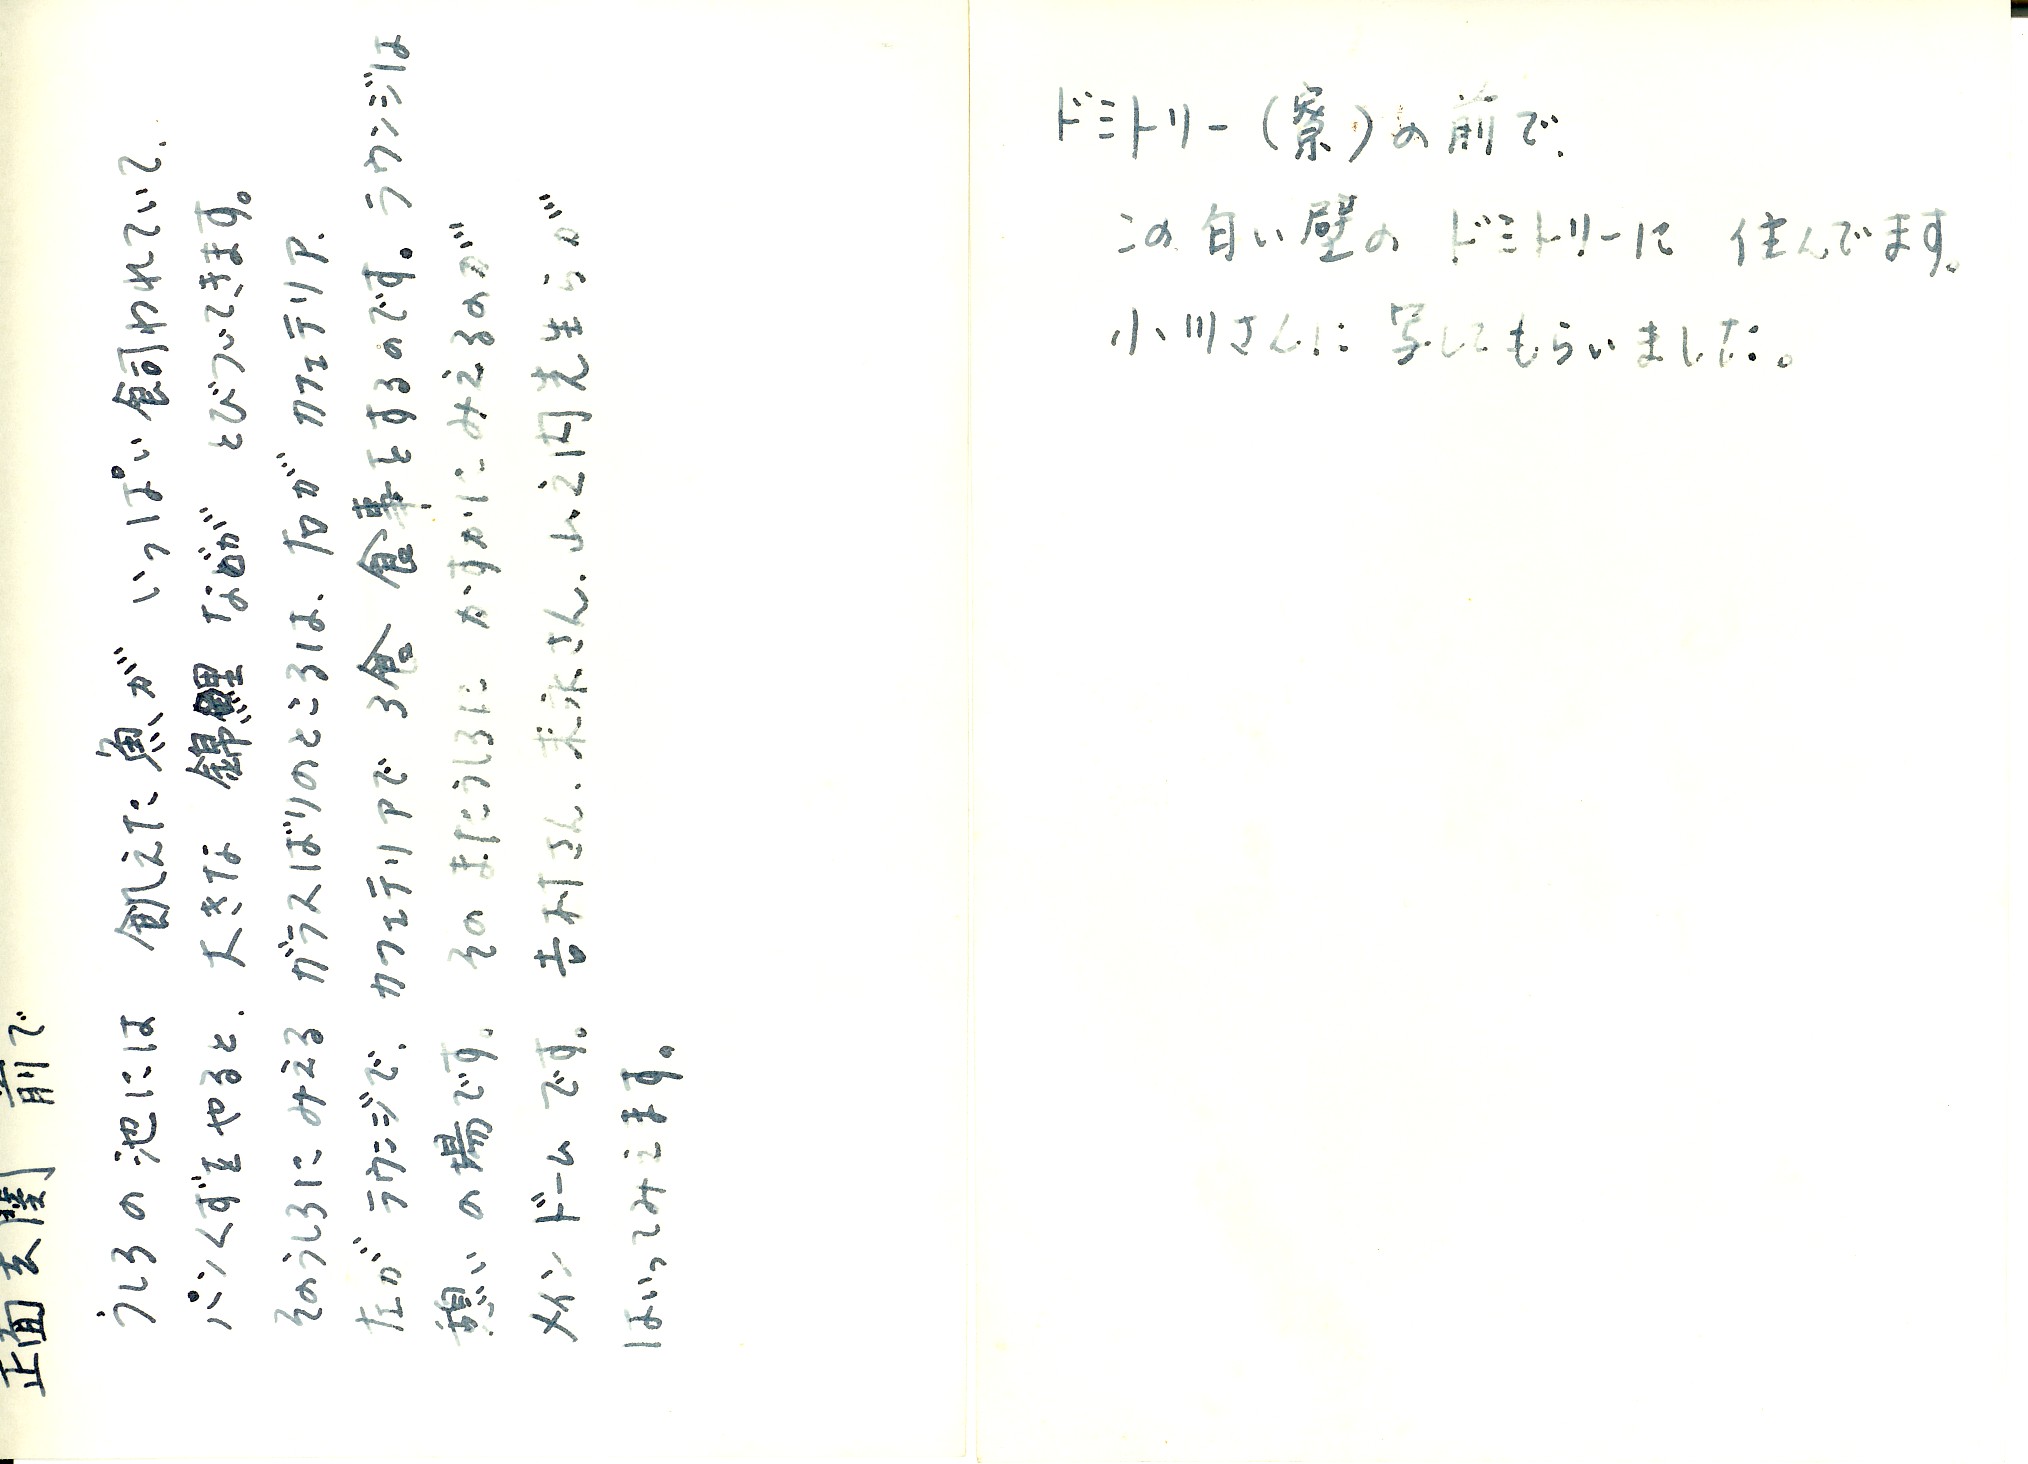 正面玄関前で
うしろの池には 飢えた魚が いっぱい飼われていて、
パンくずをやると、大きな 錦鯉 などが とびついてきます。
そのうしろにみえる ガラスばりのところは、右が カフェテリア、
左が ラウンジで、カフェテリアで 3食 食事をするのです。ラウンジは
憩いの場です。そのまたうしろに かすかにみえるのが
メインドームです。吉村さん、末永さん、山之内先生らが
はいってみえます。
ドミトリー(寮)の前で、
この白い壁の ドミトリーに 住んでます。
小川さんに 写してもらいました。